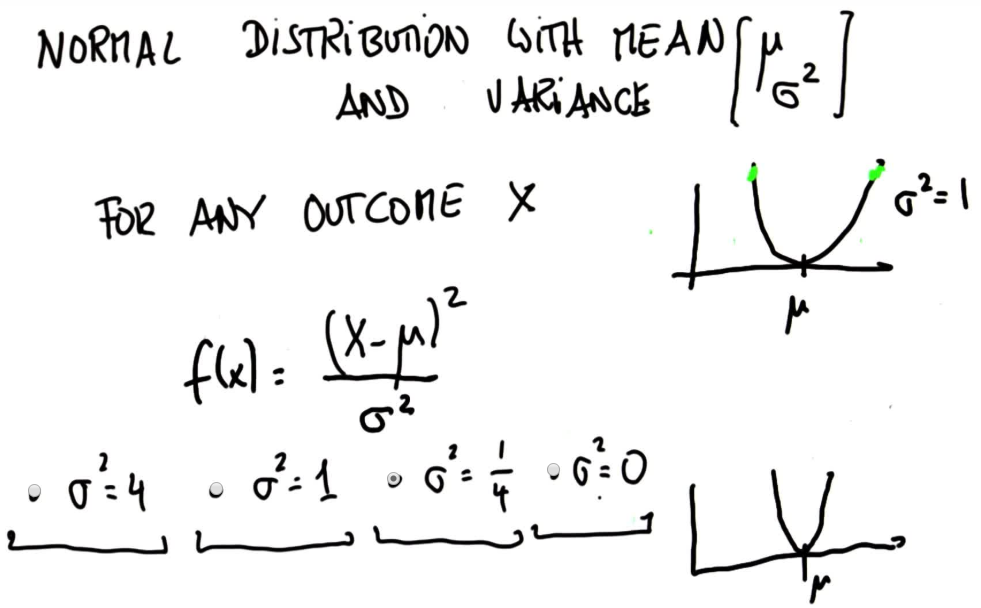 NORMAL DISTRIBUTION WITH MEAN [μ
AND VARIANCE σ²]
FOR ANY OUTCOME X
σ²=1
μ
f(x) = (X-μ)² / σ²
σ²=4 σ²=1 σ²=1/4 σ²=0
μ